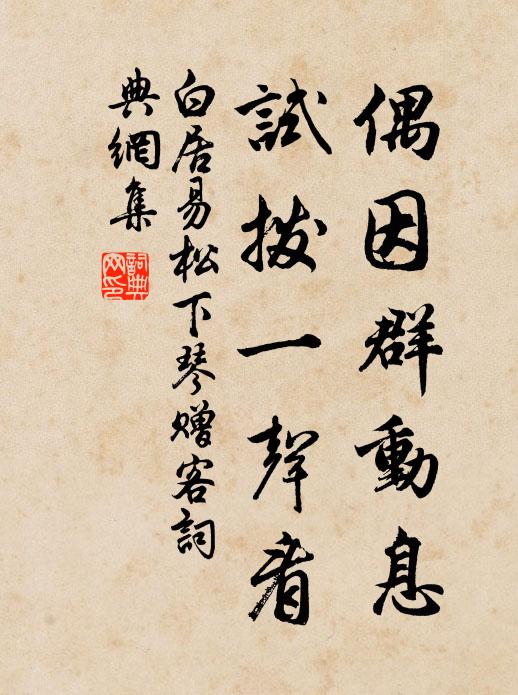 偶因群動息
試撥一聲看
白居易松下琴贈客詞
典網集
詞典
网印